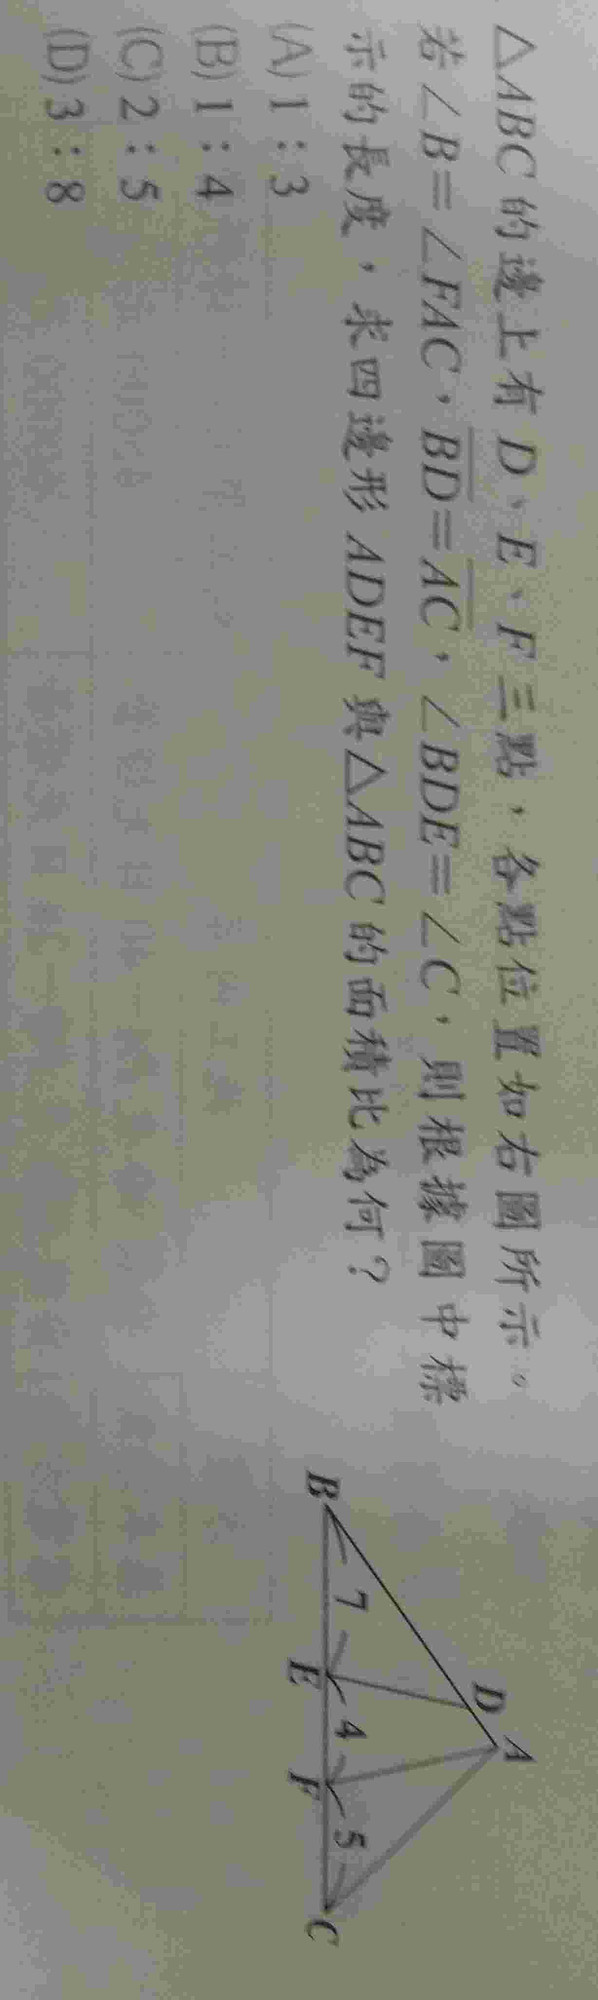 △ABC 的邊上有 D、E、F 三點，各點位置如右圖所示。
若∠B=∠FAC，BD=AC，∠BDE=∠C，則根據圖中標
示的長度，求四邊形 ADEF 與△ABC 的面積比為何？
(A) 1：3
(B) 1：4
(C) 2：5
(D) 3：8
A
D
B 7 E 4 F 5 C